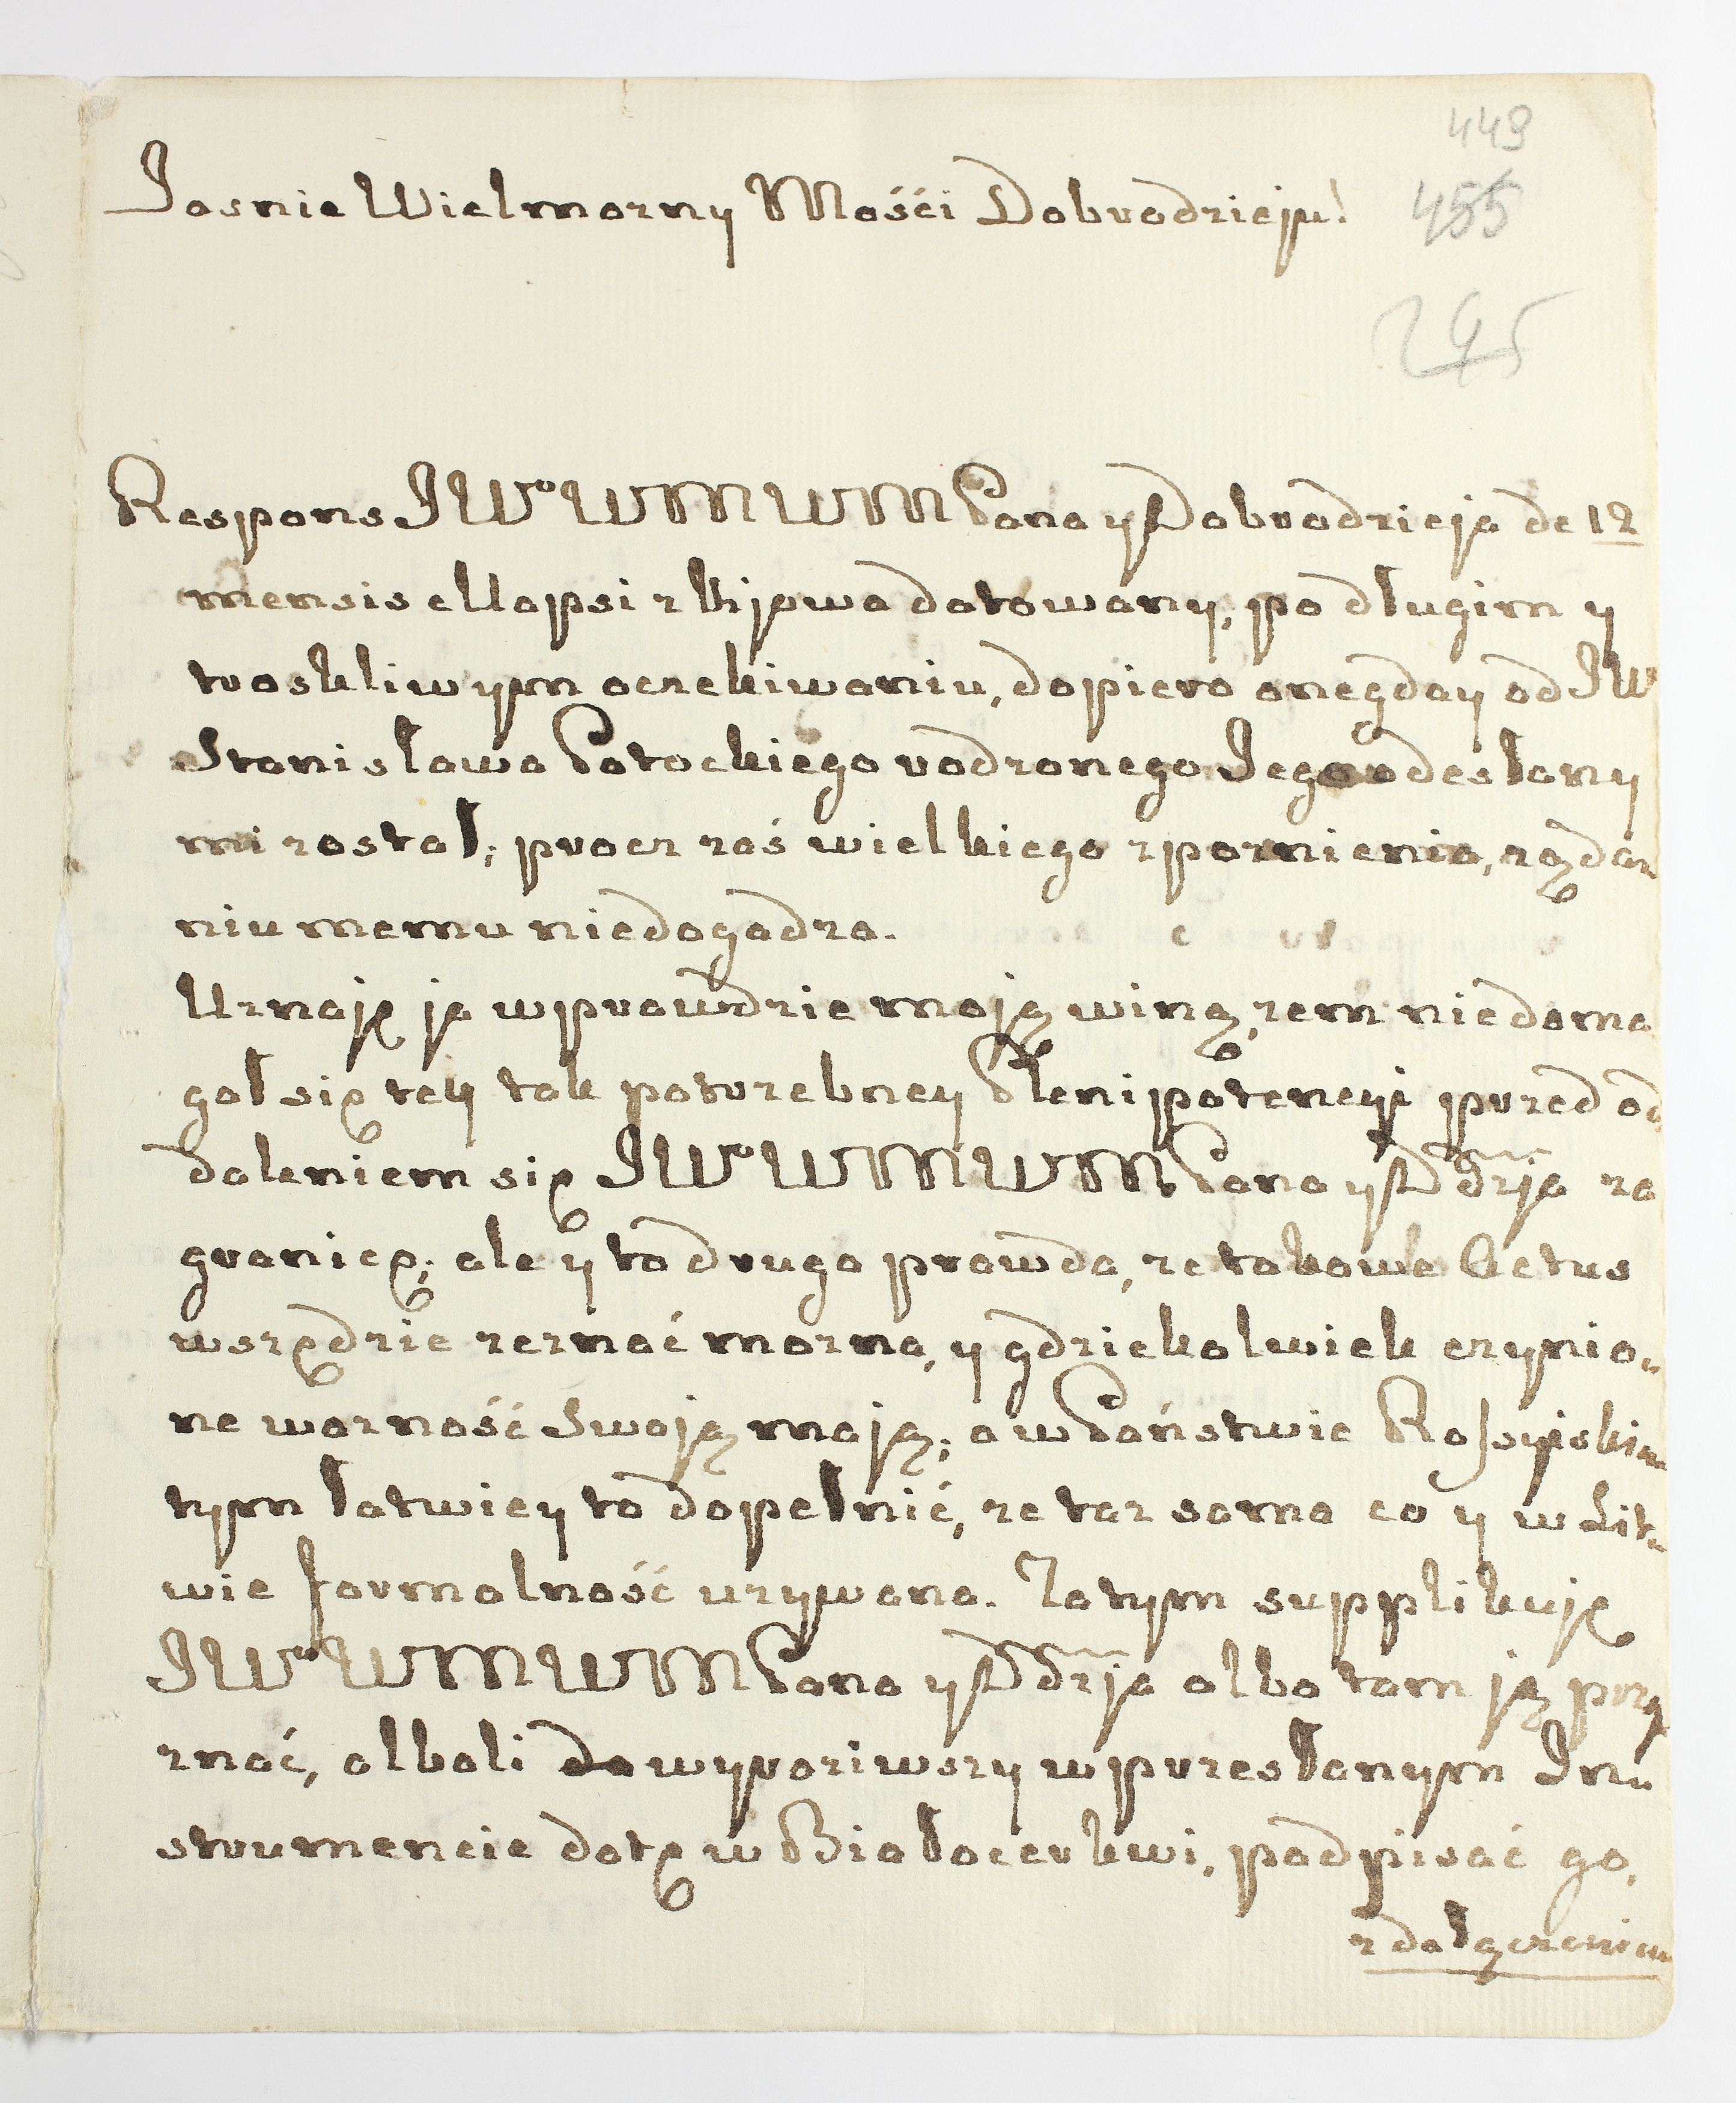 449
Jasnie Wielmozny Mośći Dobrodzieju!
455
295
Respons JWo WM WM Pana y Dobrodzieja de 12
mensis ellapsi z Kijowa datowany, po długim y
troskliwym oczekiwaniu, dopiero onegday od JWo
Stanisława Potockiego rodzonego Jego odesłany
mi został; procz zaś wielkiego zpoznienia, rząda„
niu memu niedogadza.
Uznaję ja wprawdzie moją winą, zem niedoma
gał się tey tak potrzebney Plenipotencyi przed od„
daleniem się JWo WM WM Pana y Ddzija za
granicę; ale y to druga prawda, ze takowe Actus
wszędzie zeznać mozna, y gdziekolwiek czynio„
ne wazność Swoją mają; a w Państwie Rossyiskim
tym łatwiey to dopełnić, ze taz sama co y w Lit„
wie formalność uzywana. Zatym supplikuję
JWo WM WM Pana y Ddzija albo tam ją przy
znać, alboli do wyraziwszy w przesłanym Jn„
strumencie datę w Białocerkwi, podpisać go,
z dołączeniem